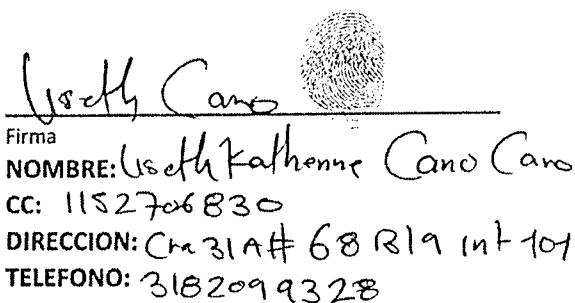 Liseth Cano
Firma
NOMBRE: Liseth Katherine Cano Cano
CC: 1152706830
DIRECCION: Cra 31A# 68 B19 int 101
TELEFONO: 3182099328